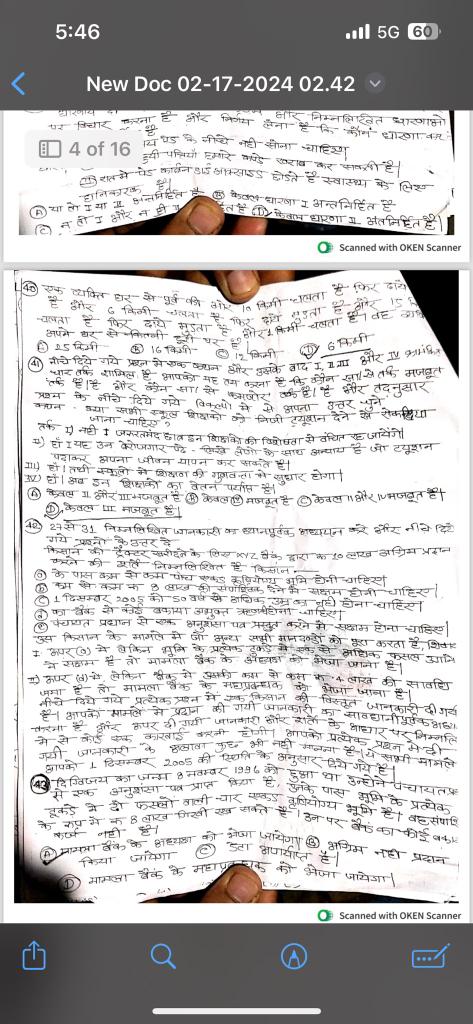 5:46
5G 60
New Doc 02-17-2024 02.42
4 of 16
पर विचार करना है और निर्णय लेना है कि कौन धारणा
पेड़ के नीचे नहीं सोना चाहिए।
हानिकारक है।
(A) या तो I या II अन्तर्निहित है (B) केवल धारणा I अन्तर्निहित है
(C) न तो I और न ही II (D) केवल धारणा II अंतर्निहित है।
Scanned with OKEN Scanner
(40) एक व्यक्ति घर से पूर्व की ओर किमी चलता है फिर दायें
है और 6 किमी चलता है फिर दायें मुड़ता है और 15 कि
चलता है फिर दायें मुड़ता है और 1 किमी चलता है। वह
अपने घर से कितनी दूरी पर है
15 किमी (B) 16 किमी (C) 12 किमी (D) 6 किमी
(41) नीचे दिये गये प्रश्न में एक कथन और उसके बाद I, II, III और IV क्रमांकित
चार तर्क शामिल हैं, आपको यह तय करना है कि कौन सा/से तर्क मजबूत
तर्क है/हैं और कौन सा/से कमजोर तर्क है/हैं और तदनुसार
प्रश्न के नीचे दिये गये विकल्पों में से अपना उत्तर चुनें
कथन - क्या सभी स्कूल शिक्षकों को निजी ट्यूशन देने से रोक दिया
जाना चाहिए?
तर्क I) नहीं। जरूरतमंद छात्र इन शिक्षकों की विशेषता से वंचित रह जायेंगे।
II) हाँ। यह उन बेरोजगार पढ़े-लिखे लोगों के साथ अन्याय है जो ट्यूशन
पढ़ाकर अपना जीवन यापन कर सकते हैं।
III) हाँ। तभी स्कूलों में शिक्षण की गुणवत्ता में सुधार होगा।
IV) हाँ। अब इन शिक्षकों का वेतन पर्याप्त है।
(A) केवल II और III मजबूत है (B) केवल मजबूत है (C) केवल I और IV मजबूत है।
(D) केवल III मजबूत है।
(42) 29 से 31 निम्नलिखित जानकारी का ध्यानपूर्वक अध्ययन करें और नीचे दिये
गये प्रश्नों के उत्तर दें
किसान को ट्रैक्टर खरीदने के लिए XYZ बैंक द्वारा रू 10 लाख अग्रिम प्रदान
करने की शर्तें निम्नलिखित हैं किसान -
(a) के पास कम से कम पांच एकड़ कृषियोग्य भूमि होनी चाहिए।
(b) कम से कम रू 8 लाख की संपार्श्विक देने में सक्षम होनी चाहिए।
(c) 1 दिसम्बर 2005 को 50 वर्ष से अधिक उम्र का नहीं होना चाहिए।
(d) का बैंक से कोई बकाया ऋण नहीं होना चाहिए।
(e) पंचायत प्रधान से एक अनुशंसा पत्र प्रस्तुत करने में सक्षम होना चाहिए।
उस किसान के मामले में जो अन्य सभी मानदण्डों को पूरा करता है, सिवाय
I. ऊपर (a) में लेकिन भूमि के प्रत्येक टुकड़े में एक से अधिक फसल उगाने
में सक्षम है तो मामला बैंक के अध्यक्ष को भेजा जाना है।
II) ऊपर (b) में लेकिन बैंक में उसकी कम से कम रू 4 लाख की सावधि
जमा है तो मामला बैंक के महाप्रबन्धक को भेजा जाना है।
नीचे दिये गये प्रत्येक प्रश्न में एक किसान की विस्तृत जानकारी दी गयी
है। आपको मामले में प्रदान की गयी जानकारी का सावधानीपूर्वक
करना है और ऊपर दी गयी जानकारी और शर्तों के आधार पर निम्नलि
में से कोई एक कारवाई करनी होगी। आपको प्रत्येक प्रश्न में दी
गयी जानकारी के अलावा कुछ भी नहीं मानना है। ये सभी मामले
आपको 1 दिसम्बर 2005 की स्थिति के अनुसार दिये गये हैं।
(43) दिग्विजय का जन्म 8 नवम्बर 1996 को हुआ था उन्होंने पंचायत प्र
से एक अनुशंसा पत्र प्राप्त किया है, उनके पास भूमि के प्रत्येक
टुकड़े में दो फसलों वाली चार एकड़ कृषियोग्य भूमि है। वह संपा
के रूप में रू 8 लाख गिरवी रख सकते हैं। उन पर बैंक का कोई
कर्ज नहीं है।
(A) मामला बैंक के अध्यक्ष को भेजा जायेगा। (B) अग्रिम नहीं प्रदान
किया जायेगा (C) डेटा अपर्याप्त है।
(D) मामला बैंक के महाप्रबन्धक को भेजा जायेगा।
Scanned with OKEN Scanner